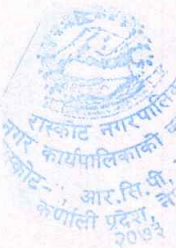 रास्कोट नगरपालि
नगर कार्यपालिकाको
स्कोट-
आर.सि.पी.
कर्णाली प्रदेश,
२०७३